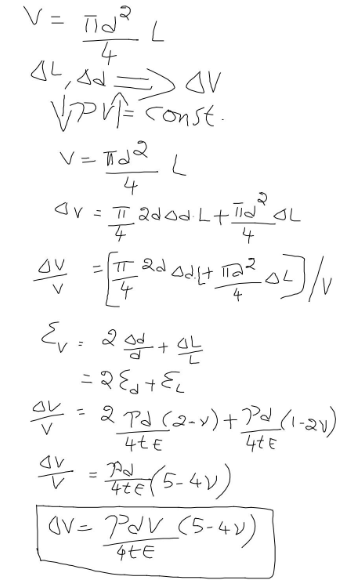 V = πd²/4 L
ΔL, Δd ⟹ ΔV
↓PV↑ = const.
V = πd²/4 L
ΔV = π/4 2dΔd·L + πd²/4 ΔL
ΔV/V = [π/4 2dΔdL + πd²/4 ΔL]/V
Ɛv = 2 Δd/d + ΔL/L
= 2Ɛd + ƐL
ΔV/V = 2 Pd/4tE (2-ν) + Pd/4tE (1-2ν)
ΔV/V = Pd/4tE (5-4ν)
ΔV = PdV/4tE (5-4ν)